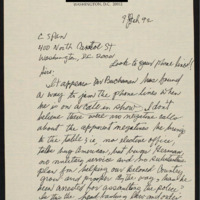 WASHINGTON, D.C. 20012
9 Feb 92
C. Span
400 North Capitol St
Washington, DC 20001
Look to your phone lines!
Sirs:
It appears Mr Buchanan have found
a way to jam the phone lines when
he is on a call in show. I don't
believe there were no negative calls
about the apparent negatives he brings
to the table; i.e., no elective office,
talks Buy American, but buys German,
no military service and no articulate
plan for helping our beloved Country
grow and prosper. By the way he has
been arrested for assaulting the police